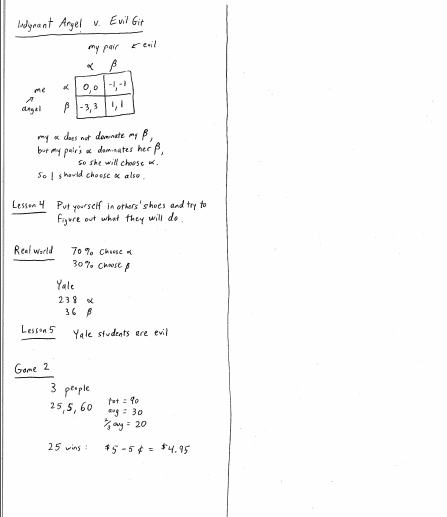 Indignant Angel v. Evil Git
my pair ← evil
α β
me α 0,0 -1,-1
angel β -3,3 1,1
my α does not dominate my β,
but my pair's α dominates her β,
so she will choose α.
So I should choose α also.
Lesson 4 Put yourself in others' shoes and try to
figure out what they will do.
Real world 70% choose α
30% choose β
Yale
238 α
36 β
Lesson 5 Yale students are evil
Game 2
3 people
25, 5, 60 tot = 90
avg = 30
2/3 avg = 20
25 wins: $5 - 5¢ = $4.95